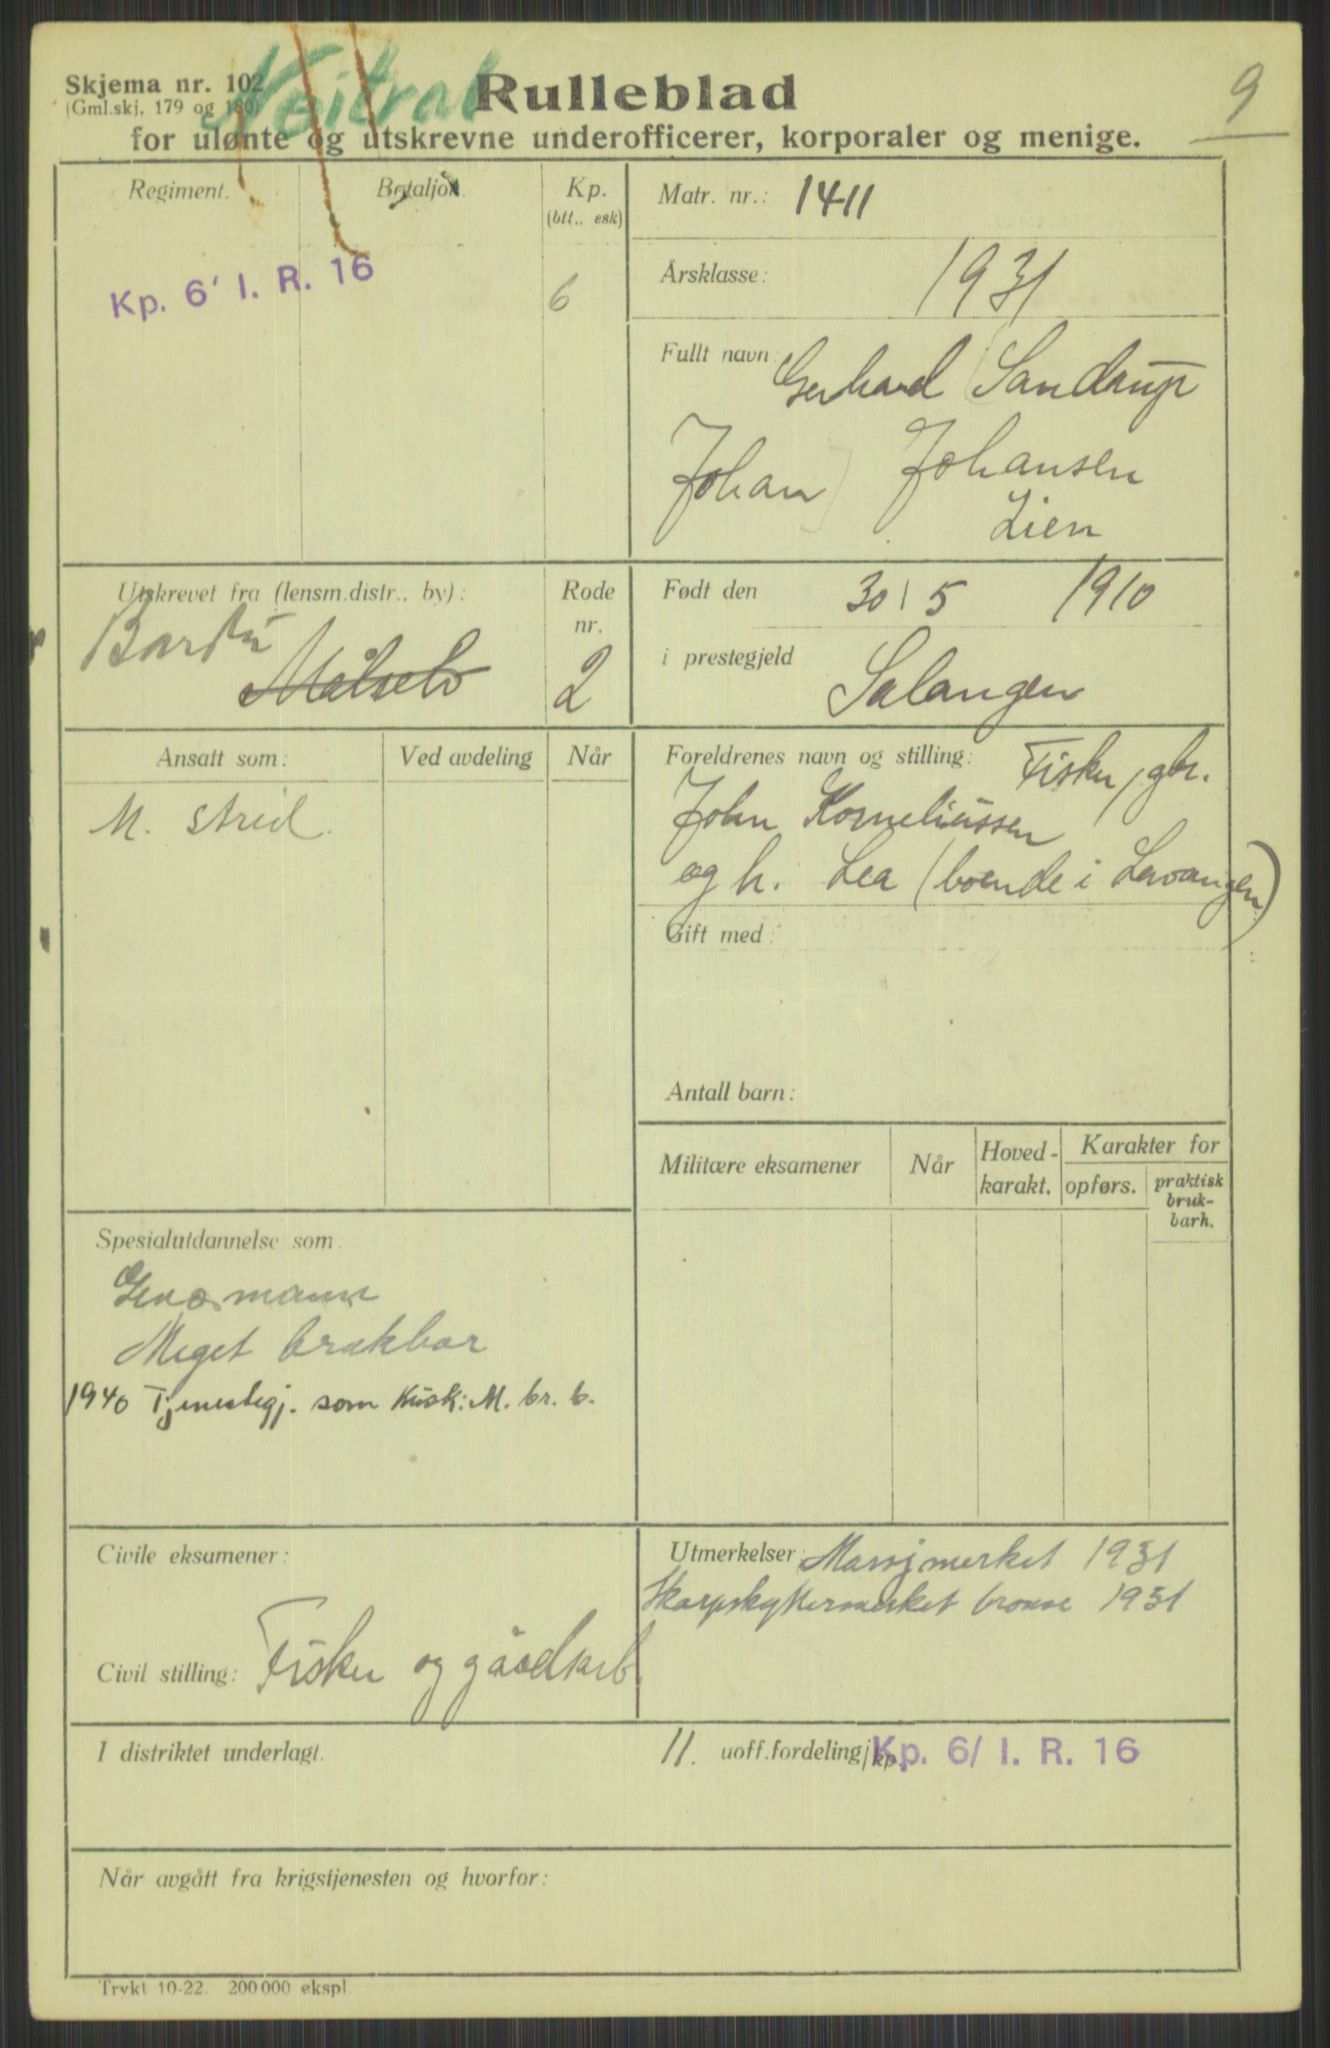 Nøitral
9
Skjema nr. 102
(Gml.skj. 179 og 180)
Rulleblad
for ulønte og utskrevne underofficerer, korporaler og menige.
Regiment.
Bataljon.
Kp.
(btt.. esk)
Kp. 6' I. R. 16
6
Matr. nr.: 1411
Årsklasse: 1931
Fullt navn: Gerhard (Sandrup
Johan) Johansen
Lien
Utskrevet fra (lensm.distr.. by):
Bardu
Målselv
Rode
nr.
2
Født den 30/5 1910
i prestegjeld Salangen
Ansatt som:
Ved avdeling
Når
M. strid.
Foreldrenes navn og stilling: Fisker/gbr.
John Korneliussen
og h. Lea (boende i Lavangen)
Gift med:
Antall barn:
Militære eksamener
Når
Hoved-
karakt.
Karakter for
opførs.
praktisk
bruk-
barh.
Spesialutdannelse som:
Geværmann
Meget brukbar
1940 Tjenestegj. som Kusk: M. br. b.
Civile eksamener:
Civil stilling: Fisker og gårdsarb
Utmerkelser: Marsjmerket 1931
Skarpskyttermerket bronse 1931
I distriktet underlagt.
11. uoff.fordeling/kp. Kp. 6/ I. R. 16
Når avgått fra krigstjenesten og hvorfor:
Trykt 10-22. 200 000 ekspl.